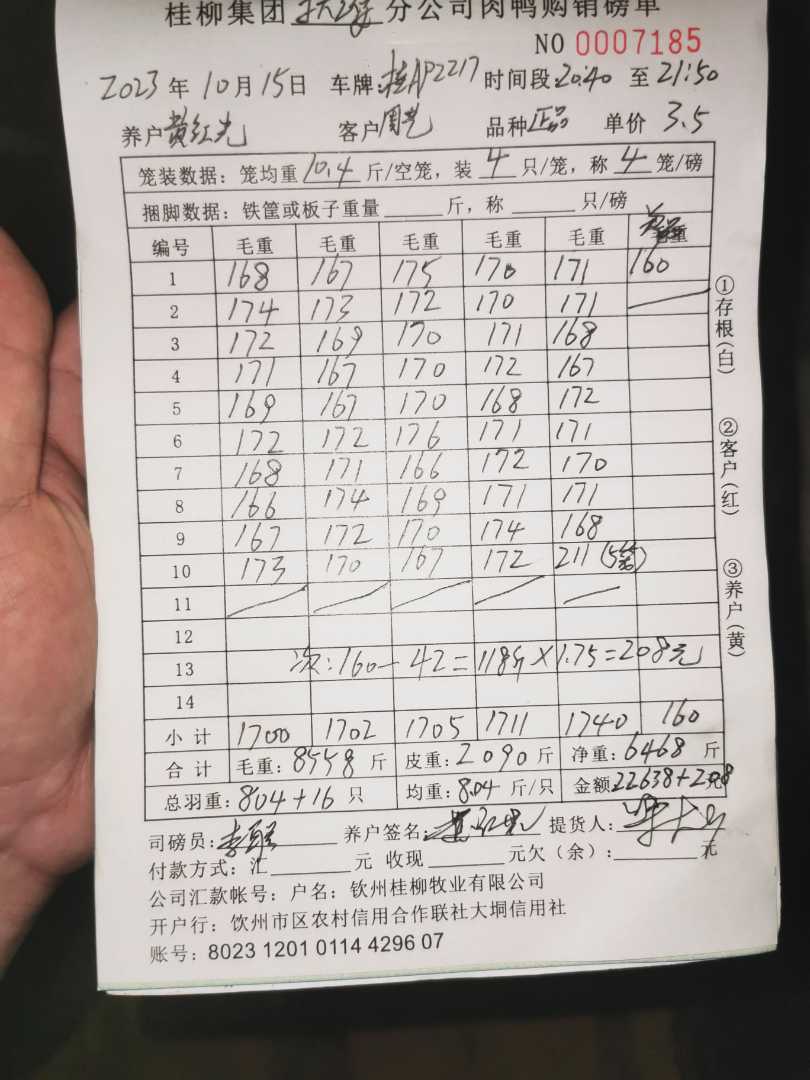 桂柳集团 分公司肉鸭购销磅单
NO 0007185
2023年10月15日 车牌:桂AP2217 时间段:20:40 至 21:50
养户 黄红光 客户 周艺 品种 正品 单价 3.5
笼装数据：笼均重 10.4 斤/空笼，装 4 只/笼，称 4 笼/磅
捆脚数据：铁筐或板子重量 斤，称 只/磅
编号 毛重 毛重 毛重 毛重 毛重
1 168 167 175 170 171 160
2 174 173 172 170 171
3 172 169 170 171 168
4 171 167 170 172 167
5 169 167 170 168 172
6 172 172 176 171 171
7 168 171 166 172 170
8 166 174 169 171 171
9 167 172 170 174 168
10 173 170 167 172 211 (5笼)
11
12
13 次:160-42=118斤×1.75=208元
14
小计 1700 1702 1705 1711 1740 160
合计 毛重:8558斤 皮重:2090斤 净重:6468斤
总羽重:804+16只 均重:8.04斤/只 金额:22638+208元
司磅员: 养户签名: 提货人:
付款方式：汇 元 收现 元欠（余）: 元
公司汇款帐号：户名：钦州桂柳牧业有限公司
开户行：饮州市区农村信用合作联社大垌信用社
账号：8023 1201 0114 4296 07
①存根(白)
②客户(红)
③养户(黄)